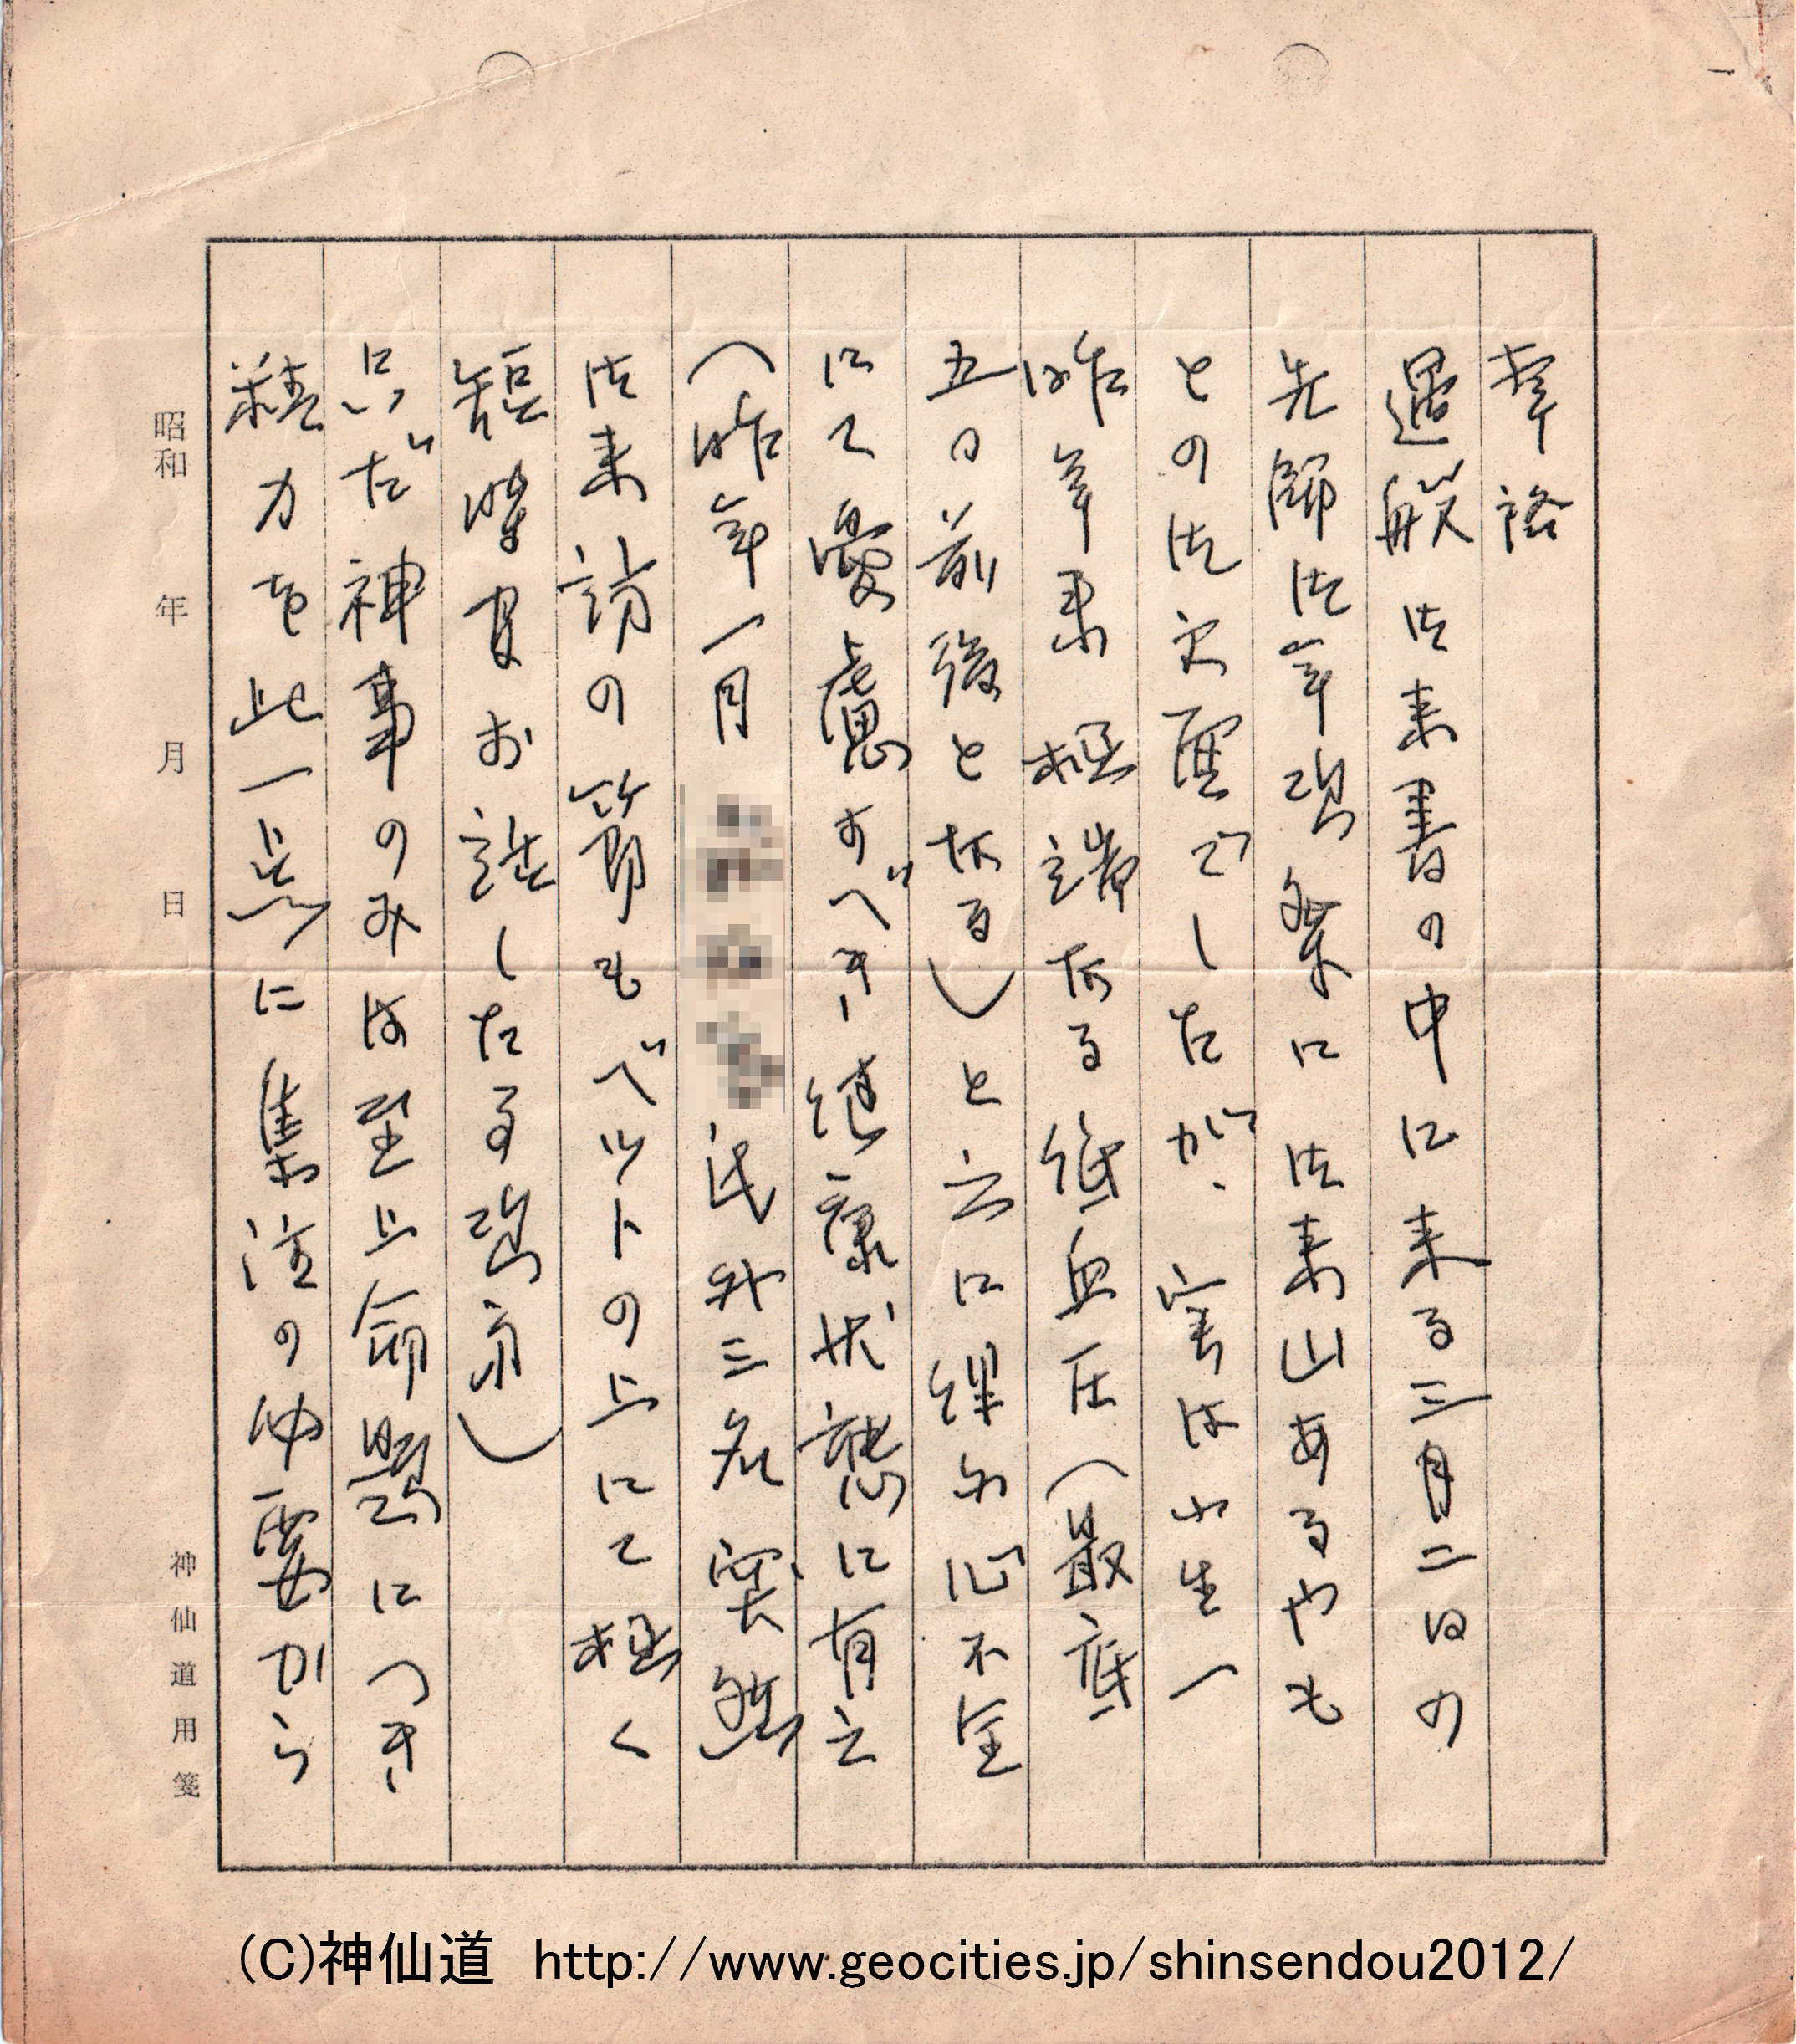 拝啓
過般御来書の中に来る三月二日の
先師御年祭に御来山あるやも
との御文面でしたが、実は小生一
昨年来極端なる低血圧(最底
五〇前後となる)と云に網内心不全
にて憂慮すべき健康状態に有之
(昨年一月 氏外三名突然
御来訪の節もベットの上にて極く
短時間お話したる程)
只だ神事のみは至上命題につき
精力を此一点に集注の必要から
昭和 年 月 日
神仙道用箋
(C)神仙道 http://www.geocities.jp/shinsendou2012/